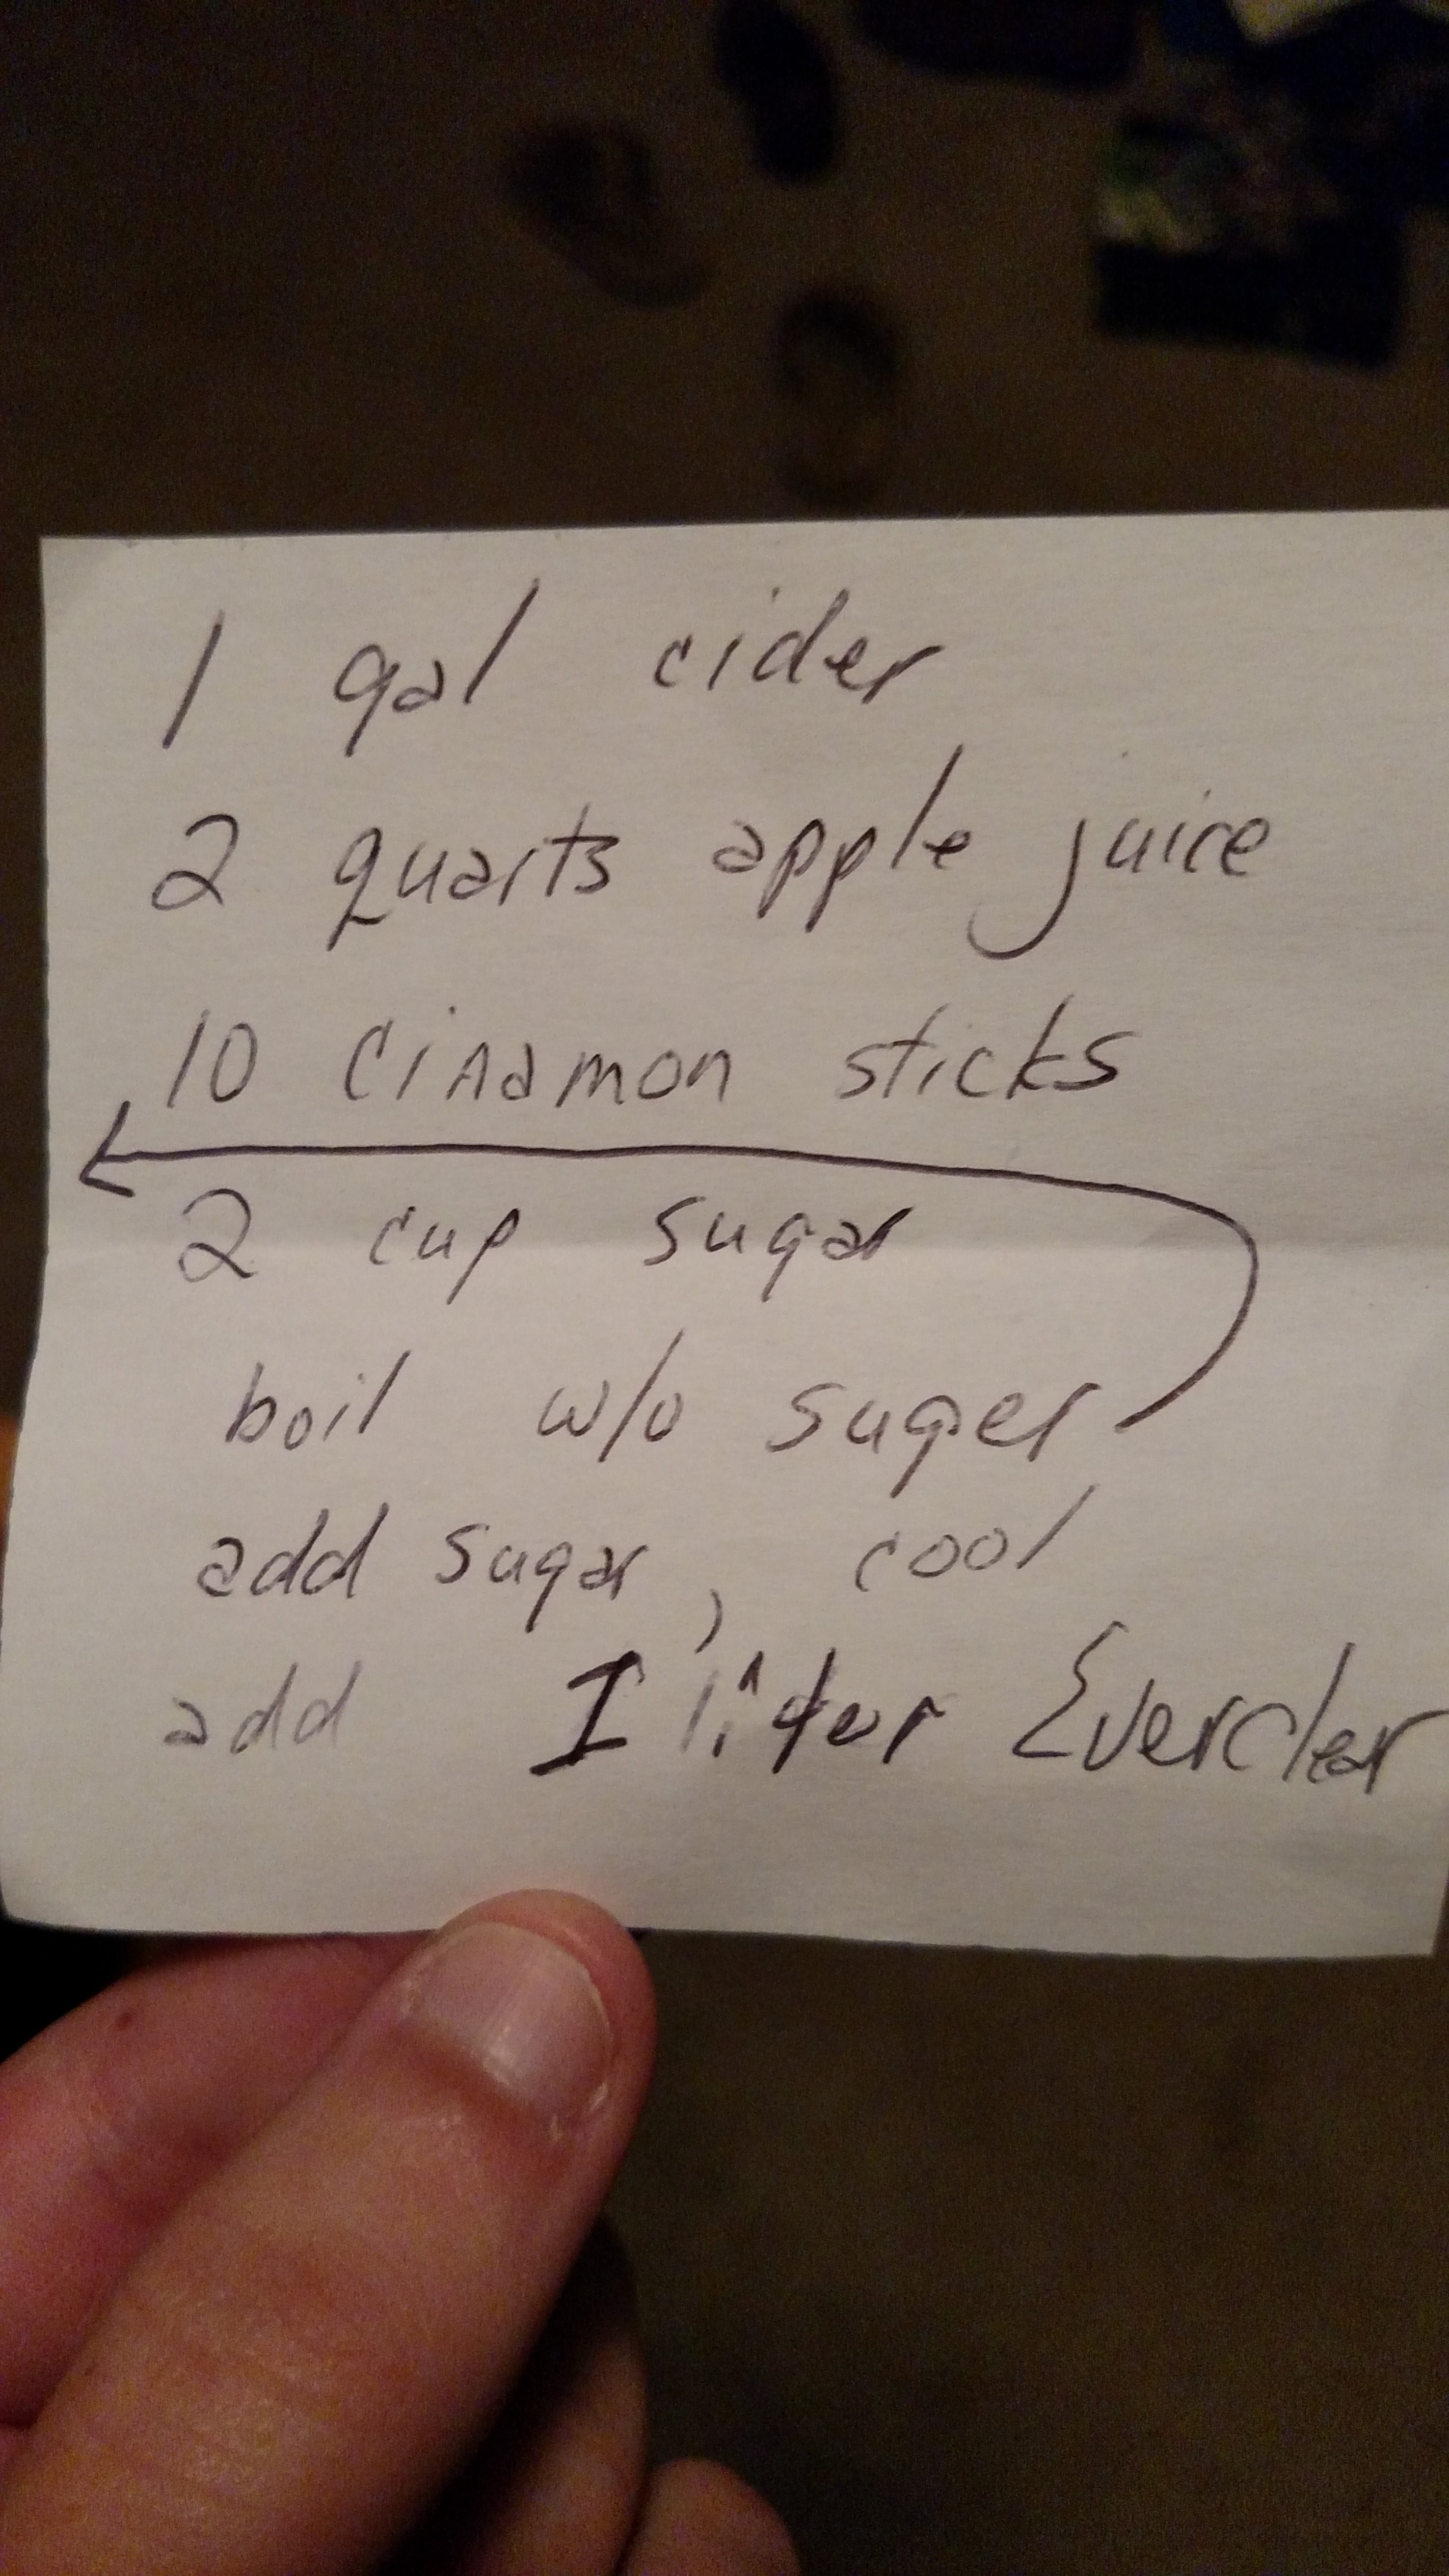 1 gal cider
2 quarts apple juice
10 cinamon sticks
2 cup sugar
boil w/o suger
add sugar, cool
add I liter Everclear